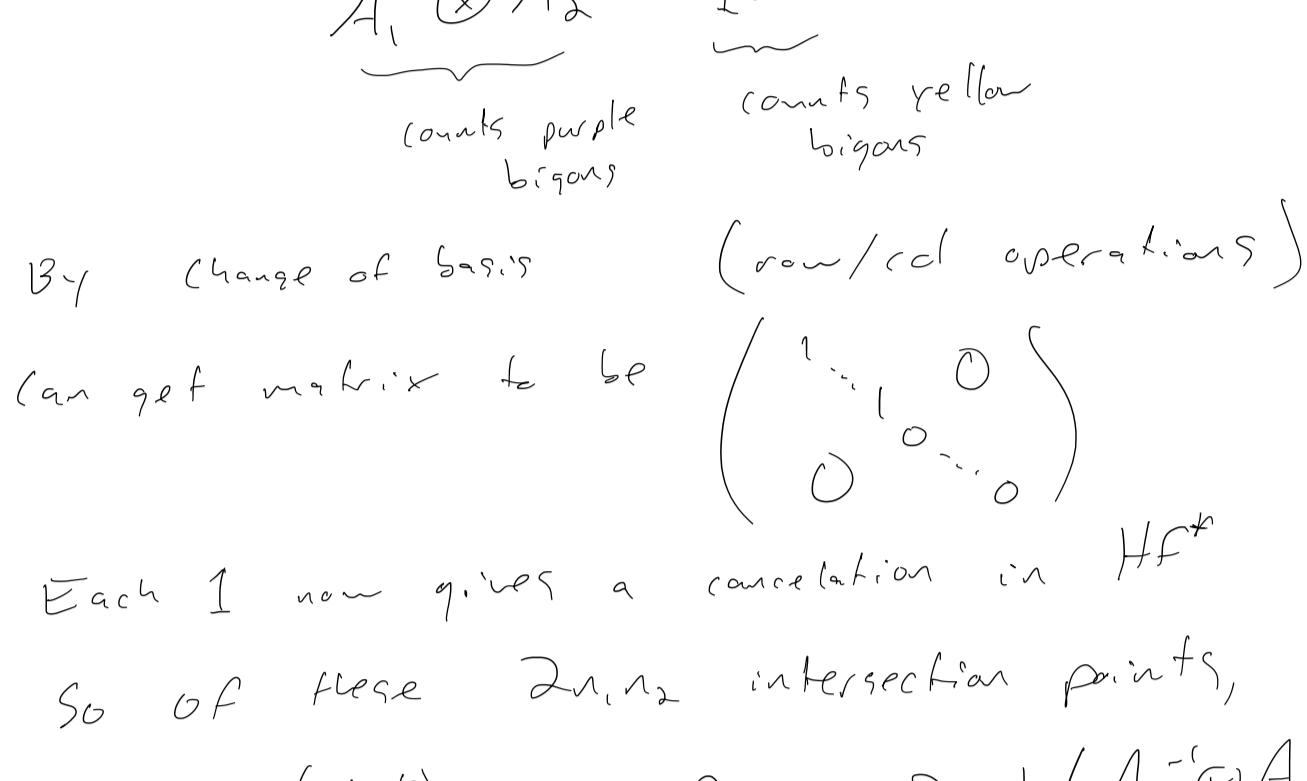 A₁ ⊗ A₂ I
counts purple bigons
counts yellow bigons
By change of basis (row/col operations)
can get matrix to be ( 1 ⋱ 1 0 ⋱ 0 0 0 )
Each 1 now gives a cancelation in HF*
So of these 2n₁n₂ intersection points,
A⁻¹ ⊗ A